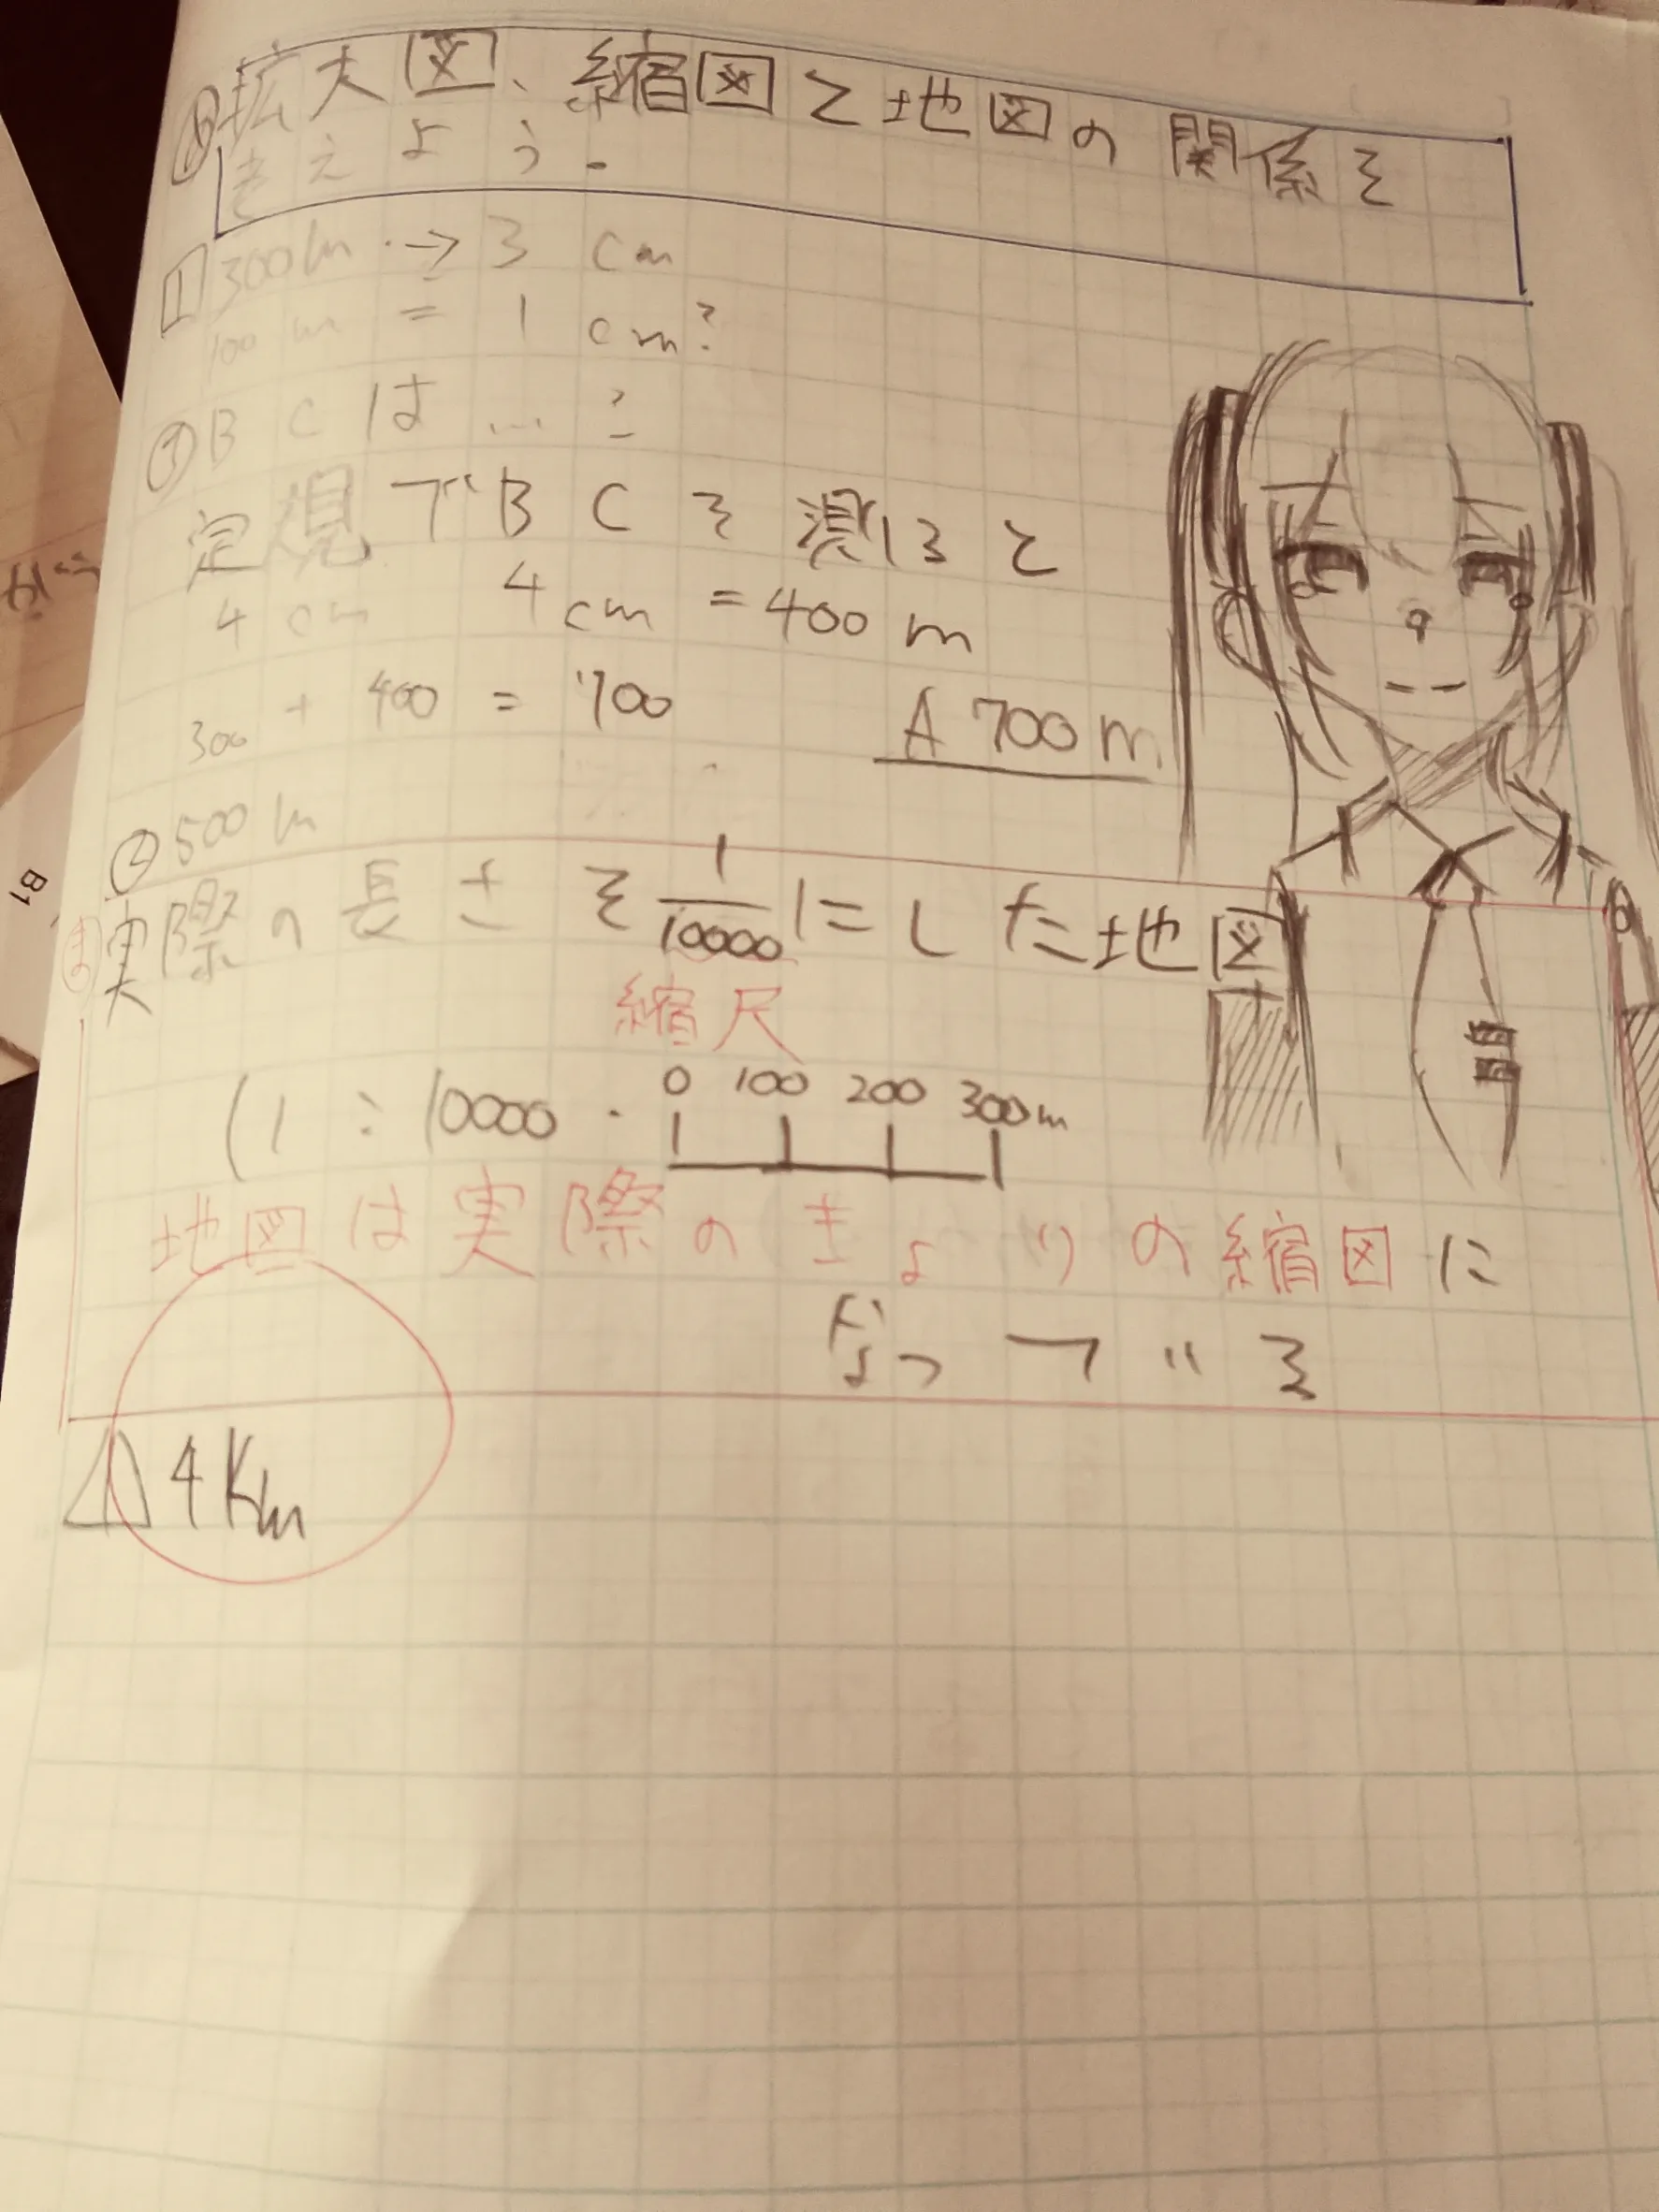 拡大図、縮図と地図の関係を
考えよう。
1 300m → 3cm
100m = 1cm?
① BCは…?
定規でBCを測ると
4cm 4cm = 400m
300 + 400 = 700 A 700m
② 500m
ま 実際の長さを1/10000にした地図
縮尺
(1:10000・0 100 200 300m
地図は実際のきょりの縮図に
なっている
△1 4Km
B1